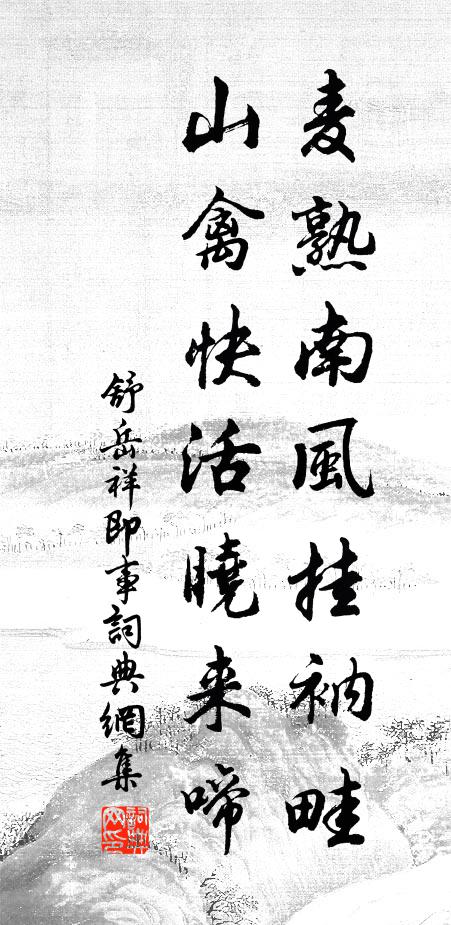 麦熟南風挂衲畦
山禽快活曉来啼
舒岳祥即事詞典網集